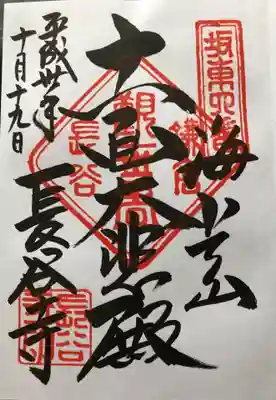 坂東四番
海光山
鎌倉
十一面大悲殿
観世音
長谷
長谷寺
平成卅年
十月十九日